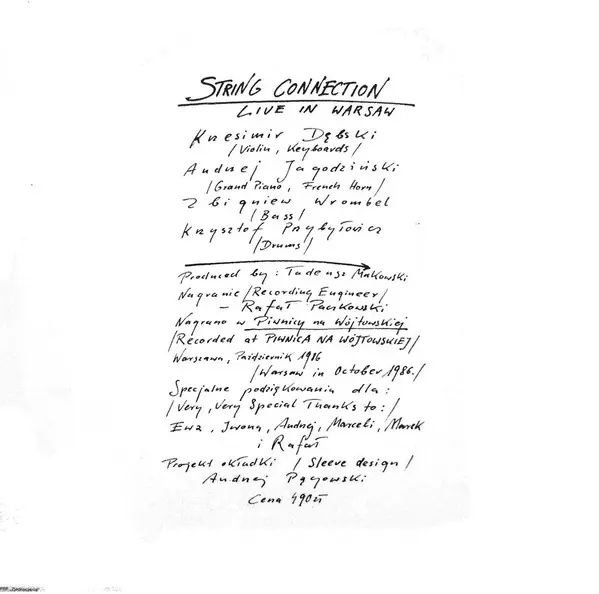 STRING CONNECTION
LIVE IN WARSAW
Krzesimir Dębski
/Violin, Keyboards/
Andrzej Jagodziński
/Grand Piano, French Horn/
Zbigniew Wrombel
/Bass/
Krzysztof Przybyłowicz
/Drums/
Produced by: Tadeusz Makowski
Nagranie /Recording Engineer/
- Rafał Paczkowski
Nagrano w Piwnicy na Wójtowskiej
/Recorded at PIWNICA NA WÓJTOWSKIEJ/
Warszawa, Październik 1986
/Warsaw in October 1986./
Specjalne podziękowania dla:
/Very, Very Special Thanks to:/
Ewa, Iwona, Andrzej, Marceli, Marek
i Rafał
Projekt okładki /Sleeve design/
Andrzej Pągowski
Cena 490zł